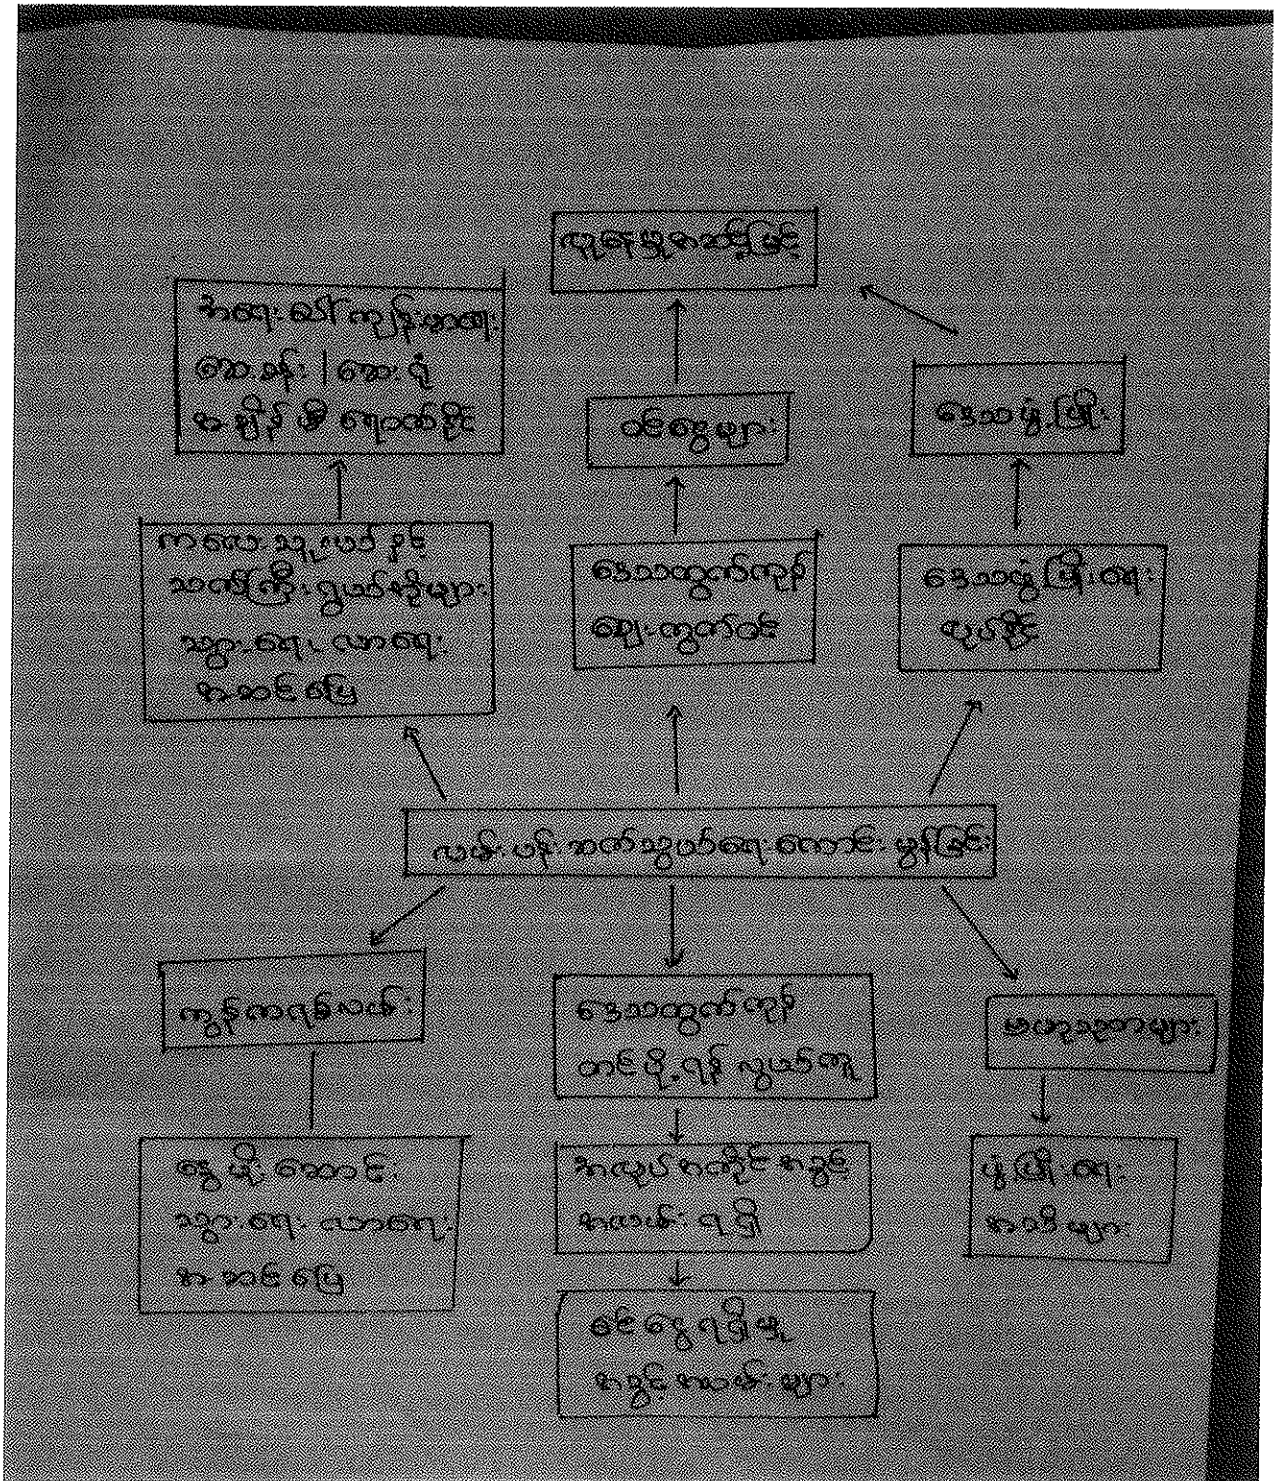 လူနေမှုအဆင့်မြင့်
အရေးပေါ်ကျန်းမာရေး
ဆေးခန်း / ဆေးရုံ
အချိန်မီ ရောက်နိုင်
ဝင်ငွေများ
ဒေသဖွံ့ဖြိုး
ကလေးသူငယ်နှင့်
သက်ကြီးရွယ်အိုများ
သွားရေး လာရေး
အဆင်ပြေ
ဒေသထွက်ကုန်
ဈေးကွက်ဝင်
ဒေသဖွံ့ဖြိုးရေး
လုပ်နိုင်
လမ်းပန်းဆက်သွယ်ရေးကောင်းမွန်ခြင်း
ကွန်ကရစ်လမ်း
ဒေသထွက်ကုန်
တင်ပို့ရန် လွယ်ကူ
ဗဟုသုတများ
နွေ မိုး ဆောင်း
သွားရေး လာရေး
အဆင်ပြေ
အလုပ်အကိုင်အခွင့်
အလမ်း ရရှိ
ဖွံ့ဖြိုးရေး
အသိများ
ဝင်ငွေရရှိမှု
အခွင့်အလမ်းများ